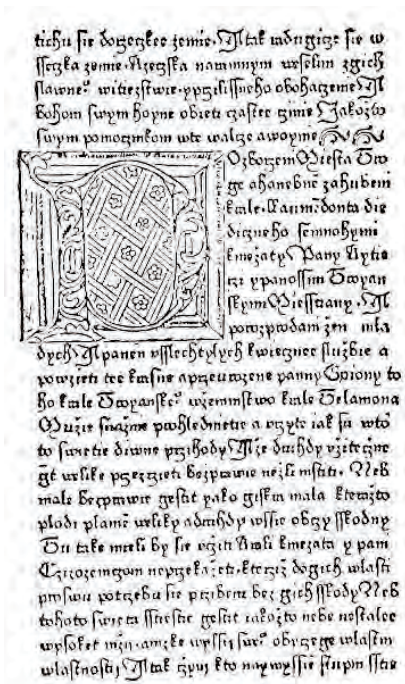 tichu sie zemie. A tak radugicze sie w
sseczka zemie. Rzeczska weselim zgich
slawne° witiezstwie. y obohaczenie A
bohom swym hoyne obieti czastee czinie Jakožto
swym pomocznikom wte walcze a woynie
O zborzeni Miesta Tro
ge a hanebne zahubeni
krale. Laumedonta die
diczneho s mnohymi
kniezaty Pany Rytie
rzi y panossim Troyan
skym Miesstiany. A
po rozprodani zen mla
dych A panen vsslechtylych sluzbie a
powzieti tee krasne a przeurozene panny to
ho krale Troyanske° krale Telamona
Muzie snazne pohledmetie a vzrzte iak su wto
to swietie diwne przihody A ze vzitecznie
gest welike przezrzieti bezprawie nezli mstiti. Neb
male bezprawie gestit yako giskra mala kterazto
plodi plamen weliky a wssie obczy sskodny
Tu take mieli by sie vcziti Krali kniezata y pani
Czizozemczom neprzekazeti. kterziz dogich wlasti
pro swu potrzebu sie bez gich sskody Neb
tohoto swieta sstiestie gestit iakozto nebe nestalee
wysokee mni. a nizke wyssij obyczege wlastni
wlastnosti A tak czyni kto naywyssie stupni sstie